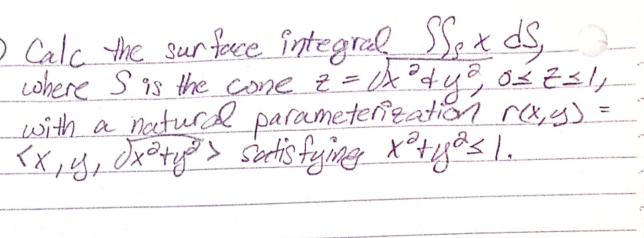 ) Calc the surface integral ∬ₛ x dS,
where S is the cone z = √x²+y², 0≤z≤1,
with a natural parameterization r(x,y) =
<x, y, √x²+y²> satisfying x²+y²≤1.